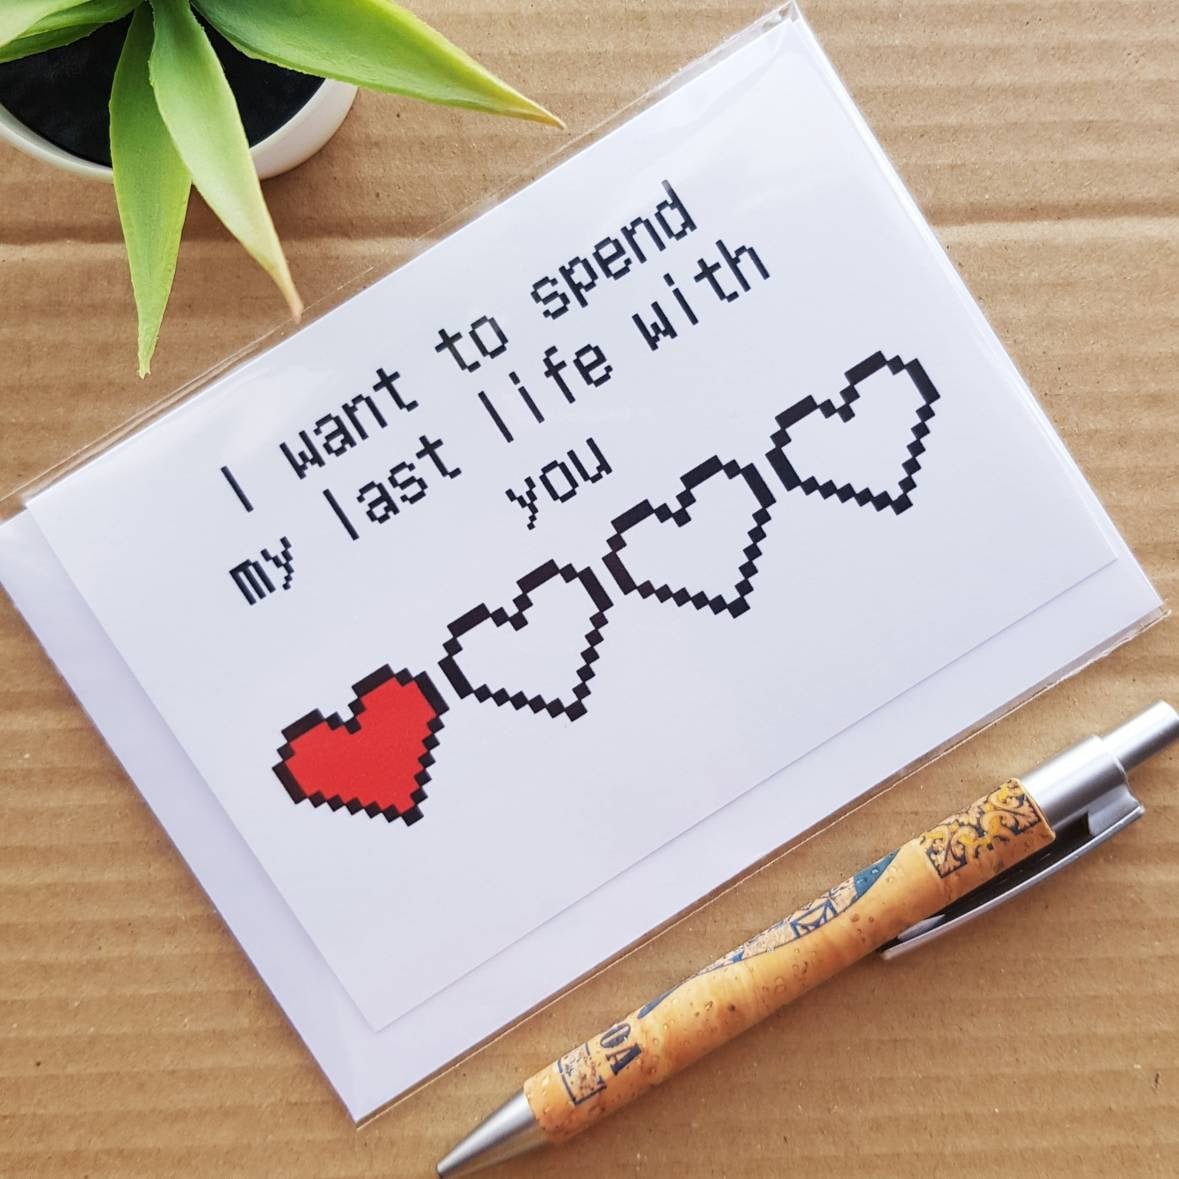 I want to spend
my last life with
you